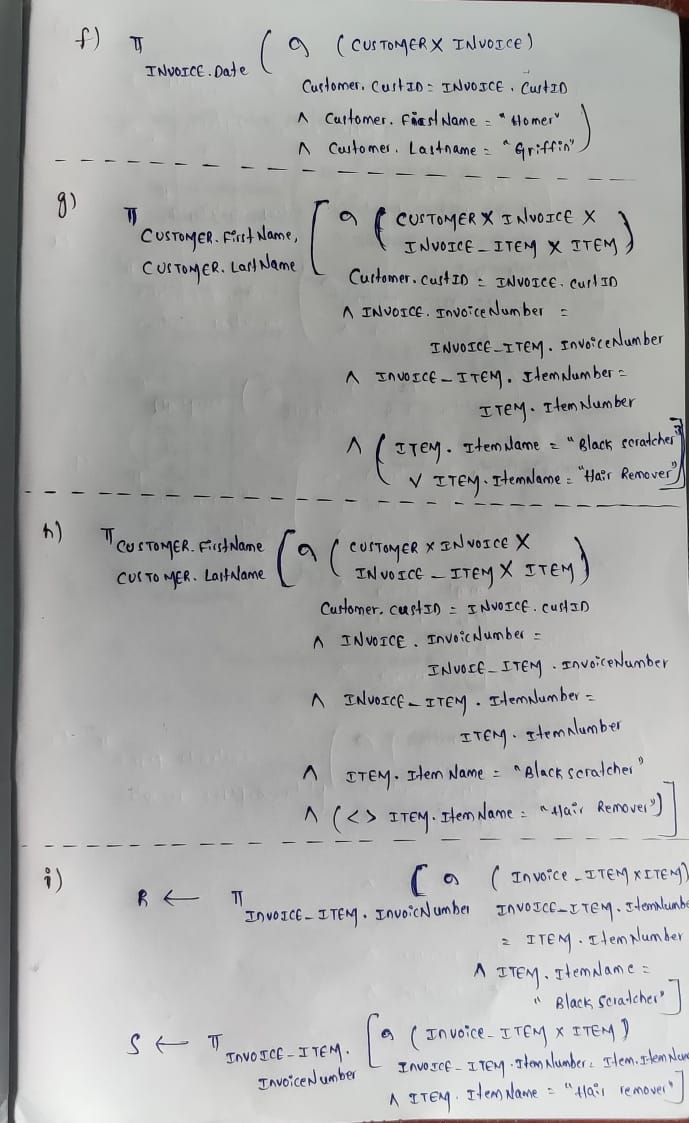 f) π INVOICE.Date ( σ (CUSTOMER X INVOICE)
Customer.CustID = INVOICE.CustID
∧ Customer.FirstName = "Homer"
∧ Customer.Lastname = "Griffin" )
g) π CUSTOMER.FirstName, CUSTOMER.LastName [ σ ( CUSTOMER X INVOICE X
INVOICE_ITEM X ITEM )
Customer.custID = INVOICE.custID
∧ INVOICE.InvoiceNumber =
INVOICE_ITEM.InvoiceNumber
∧ INVOICE_ITEM.ItemNumber =
ITEM.ItemNumber
∧ ( ITEM.ItemName = "Black scratcher"
∨ ITEM.ItemName = "Hair Remover" ) ]
h) π CUSTOMER.FirstName CUSTOMER.LastName [ σ ( CUSTOMER X INVOICE X
INVOICE_ITEM X ITEM )
Customer.custID = INVOICE.custID
∧ INVOICE.InvoicNumber =
INVOIE_ITEM.InvoiceNumber
∧ INVOICE_ITEM.ItemNumber =
ITEM.ItemNumber
∧ ITEM.Item Name = "Black scratcher"
∧ (<> ITEM.ItemName = "Hair Remover") ]
i) R ← π INVOICE_ITEM.InvoicNumber [ σ ( Invoice_ITEM X ITEM)
INVOICE_ITEM.ItemNumbe
= ITEM.ItemNumber
∧ ITEM.ItemName =
"Black Scratcher" ]
S ← π INVOICE_ITEM. InvoiceNumber [ σ ( Invoice_ITEM X ITEM )
INVOICE_ITEM.ItemNumber = Item.ItemNum
∧ ITEM.ItemName = "Hair remover" ]